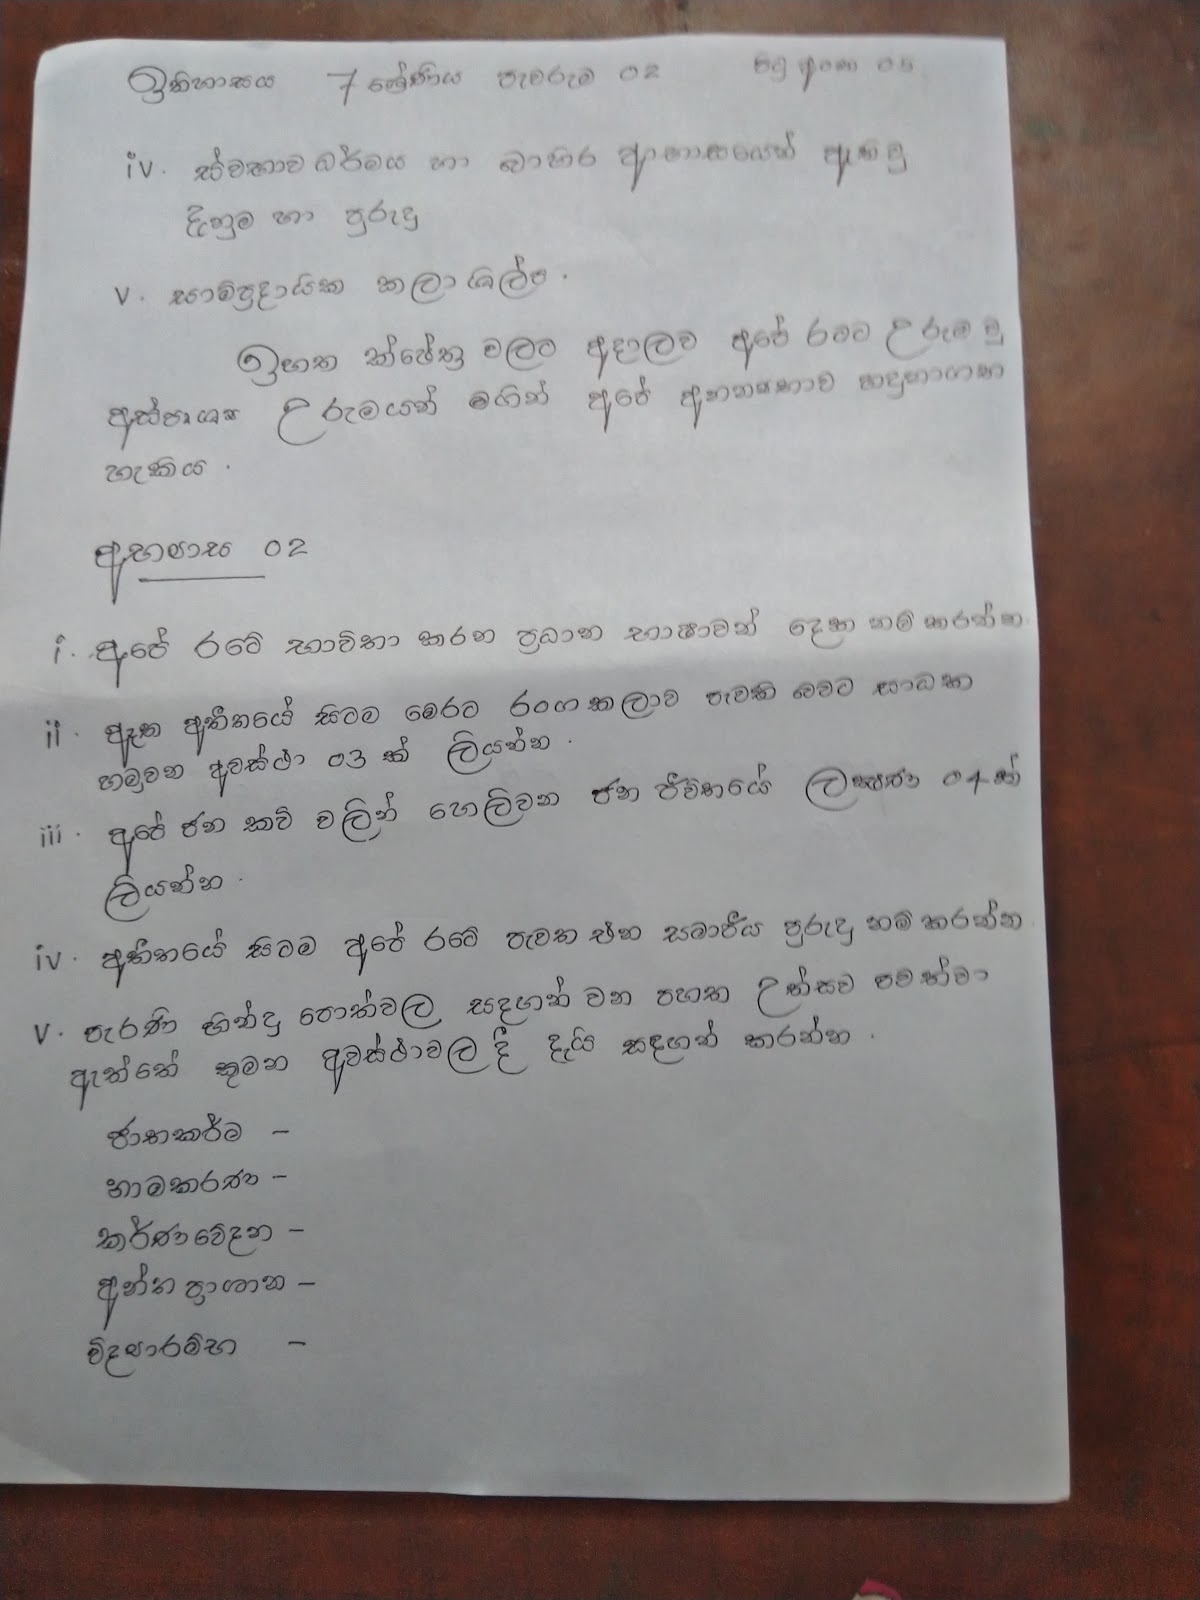 ඉතිහාසය 7 ශ්‍රේණිය පැවරුම 02 05
iv. ස්වභාව ධර්මය හා බාහිර ඇති වූ
දැනුම හා පුරුදු
v. සාම්ප්‍රදායික කලා ශිල්ප.
ඉහත ක්ෂේත්‍ර වලට අදාලව අපේ රටට උරුම වූ
අස්පෘශ්‍ය උරුමයන් මගින් අපේ අනන්‍යතාව හදුනාගත
හැකිය.
අභ්‍යාස 02
i. අපේ රටේ භාවිතා කරන ප්‍රධාන භාෂාවන් දෙක නම් කරන්න.
ii. ඈත අතීතයේ සිටම මෙරට රංග කලාව පැවති බවට සාධක
හමුවන අවස්ථා 03 ක් ලියන්න.
iii. අපේ ජන කවි වලින් හෙලිවන ජන ජීවිතයේ ලක්ෂණ 04 ක්
ලියන්න.
iv. අතීතයේ සිටම අපේ රටේ පැවත එන සමාජීය පුරුදු නම් කරන්න
v. පැරණි හින්දු පොත්වල සදහන් වන පහත උත්සව පවත්වා
ඇත්තේ කුමන අවස්ථාවල දී දැයි සඳහන් කරන්න.
ජාතකර්ම –
නාමකරණ –
කර්ණවේදන –
අන්න ප්‍රාශාන –
විද්‍යාරම්භ –